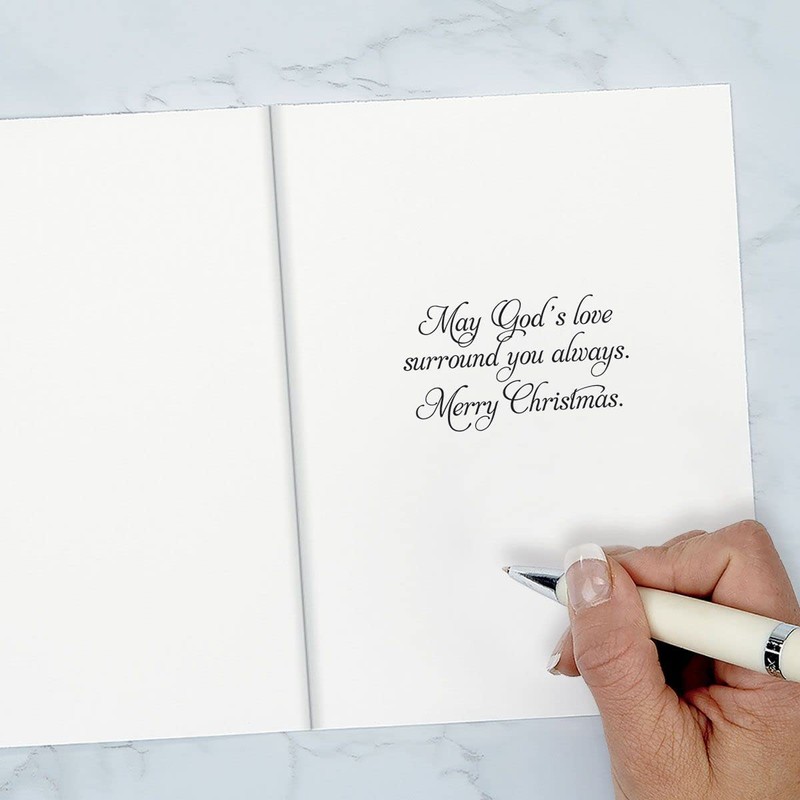 May God's love
surround you always.
Merry Christmas.